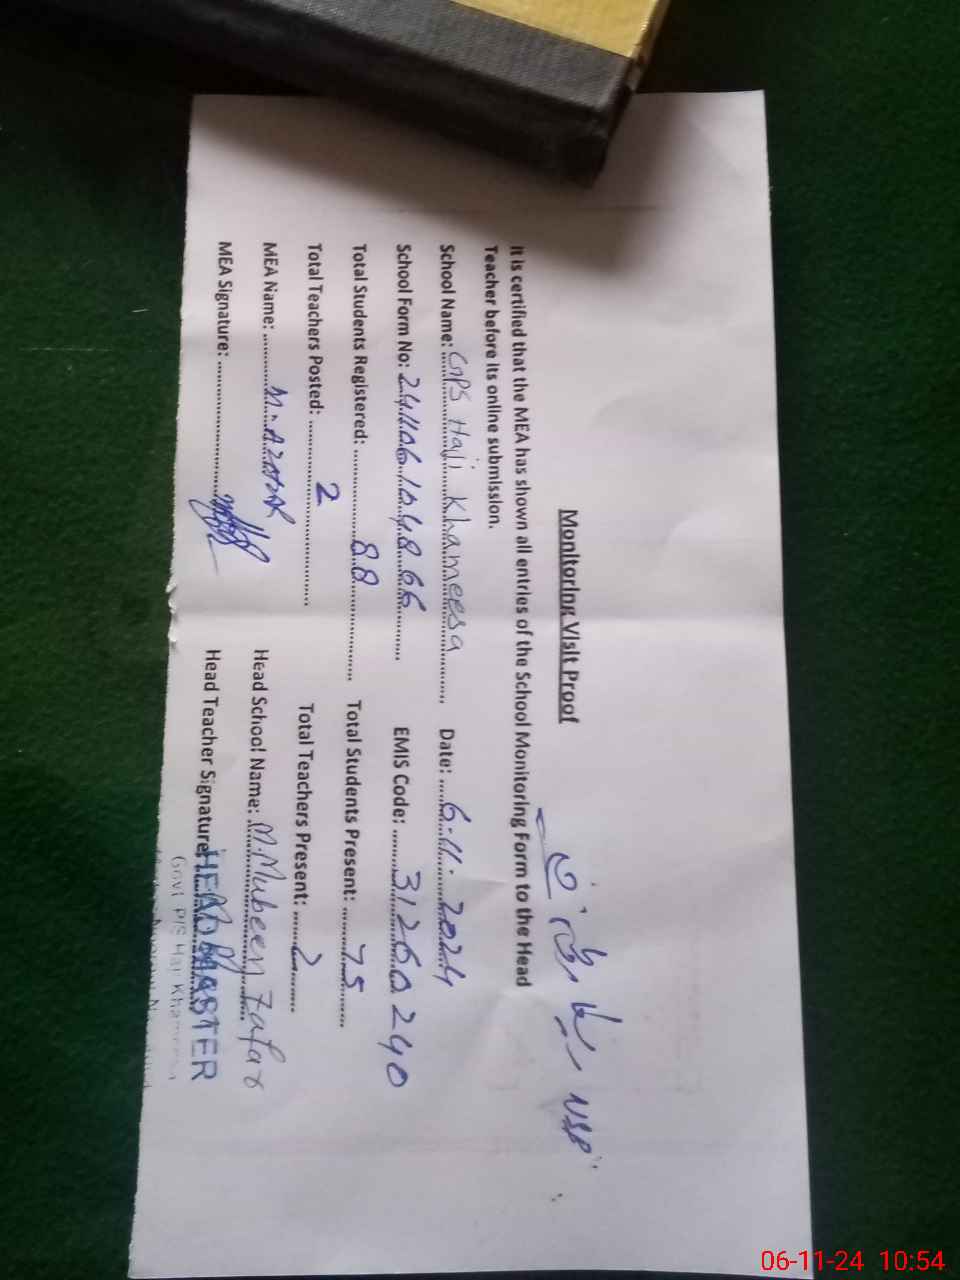 NSP
Monitoring Visit Proof
It is certified that the MEA has shown all entries of the School Monitoring Form to the Head
Teacher before its online submission.
School Name: GPS Haji Khameesa Date: 6.11.2024
School Form No: 241106104866 EMIS Code: 31260240
Total Students Registered: 88 Total Students Present: 75
Total Teachers Posted: 2 Total Teachers Present: 2
MEA Name: M. Azhar Head School Name: M. Mubeen Zafar
MEA Signature: Head Teacher Signature:
HEAD MASTER
Govt P/S Haji Khameesa
06-11-24 10:54